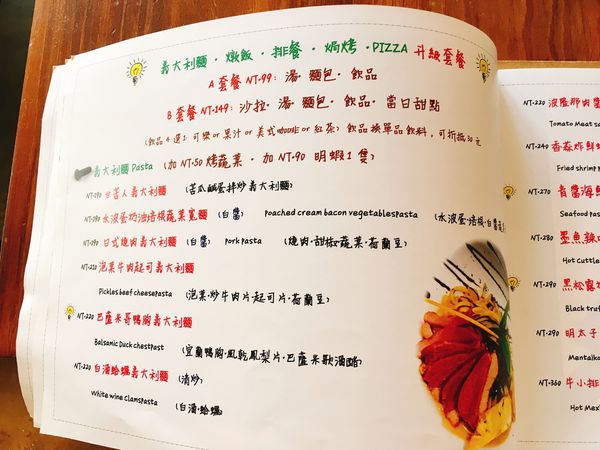 義大利麵·燉飯·排餐·焗烤·PIZZA 升級套餐
A 套餐 NT·99: 湯·麵包·飲品
B 套餐 NT·149: 沙拉·湯·麵包·飲品·當日甜點
(飲品4選1: 可樂or果汁or美式咖啡or紅茶) 飲品換單品飲料,可折抵30元
義大利麵 Pasta (加 NT·50 烤蔬菜·加 NT·90 明蝦1隻)
NT·190 台苦人義大利麵 (苦瓜鹹蛋拌炒義大利麵)
水波蛋奶油培根蔬菜寬麵 (白醬) Poached cream bacon vegetablesPasta (水波蛋·培根·白醬
NT·190 日式燒肉義大利麵 (白醬) Pork Pasta (燒肉·甜椒·蔬菜·荷蘭豆)
NT·210 泡菜牛肉起司義大利麵
Pickles beef cheesePasta (泡菜·炒牛肉片·起司片·荷蘭豆)
NT·220 巴薩米哥鴨胸義大利麵
Balsamic Duck chestPast (宜蘭鴨胸·風乾鳳梨片·巴薩米歌酒醋)
NT·220 白酒蛤蠣義大利麵 (清炒)
White wine ClamsPasta (白酒·蛤蠣)
NT·220 波隆那肉醬
Tomato Meat sa
NT·240 香蒜炸鮮蝦
Fried shrimp P
NT·270 青醬海鮮
Seafood Past
NT·280 墨魚辣
Hot Cuttle
NT·290 黑松露
Black truf
NT·290 明太子
Mentaiko
NT·360 牛小排
Hot Mex